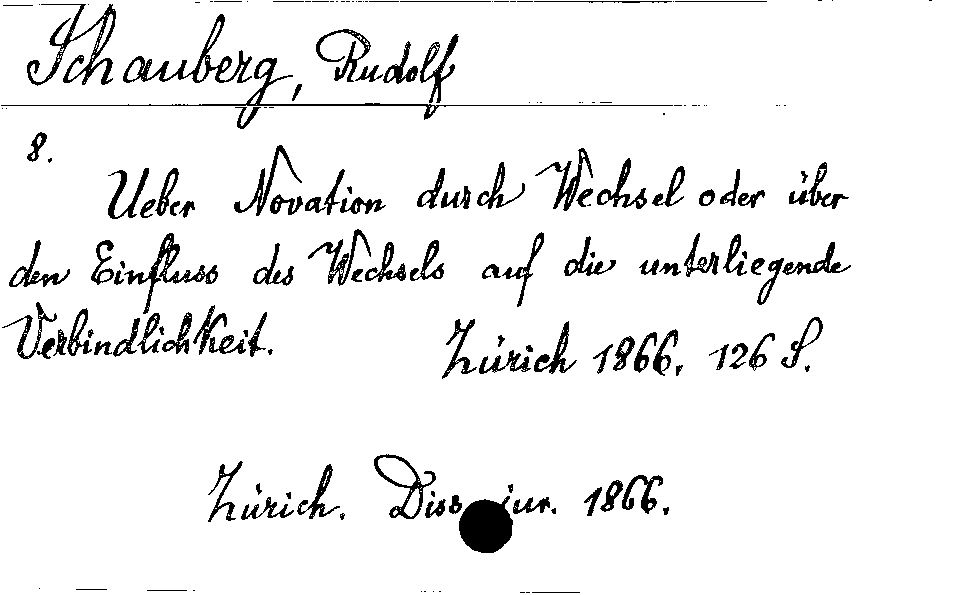 Schauberg, Rudolf
8.
Ueber Novation durch Wechsel oder über
den Einfluss des Wechsels auf die unterliegende
Verbindlichkeit. Zürich 1866. 126 S.
Zürich. Diss. jur. 1866.